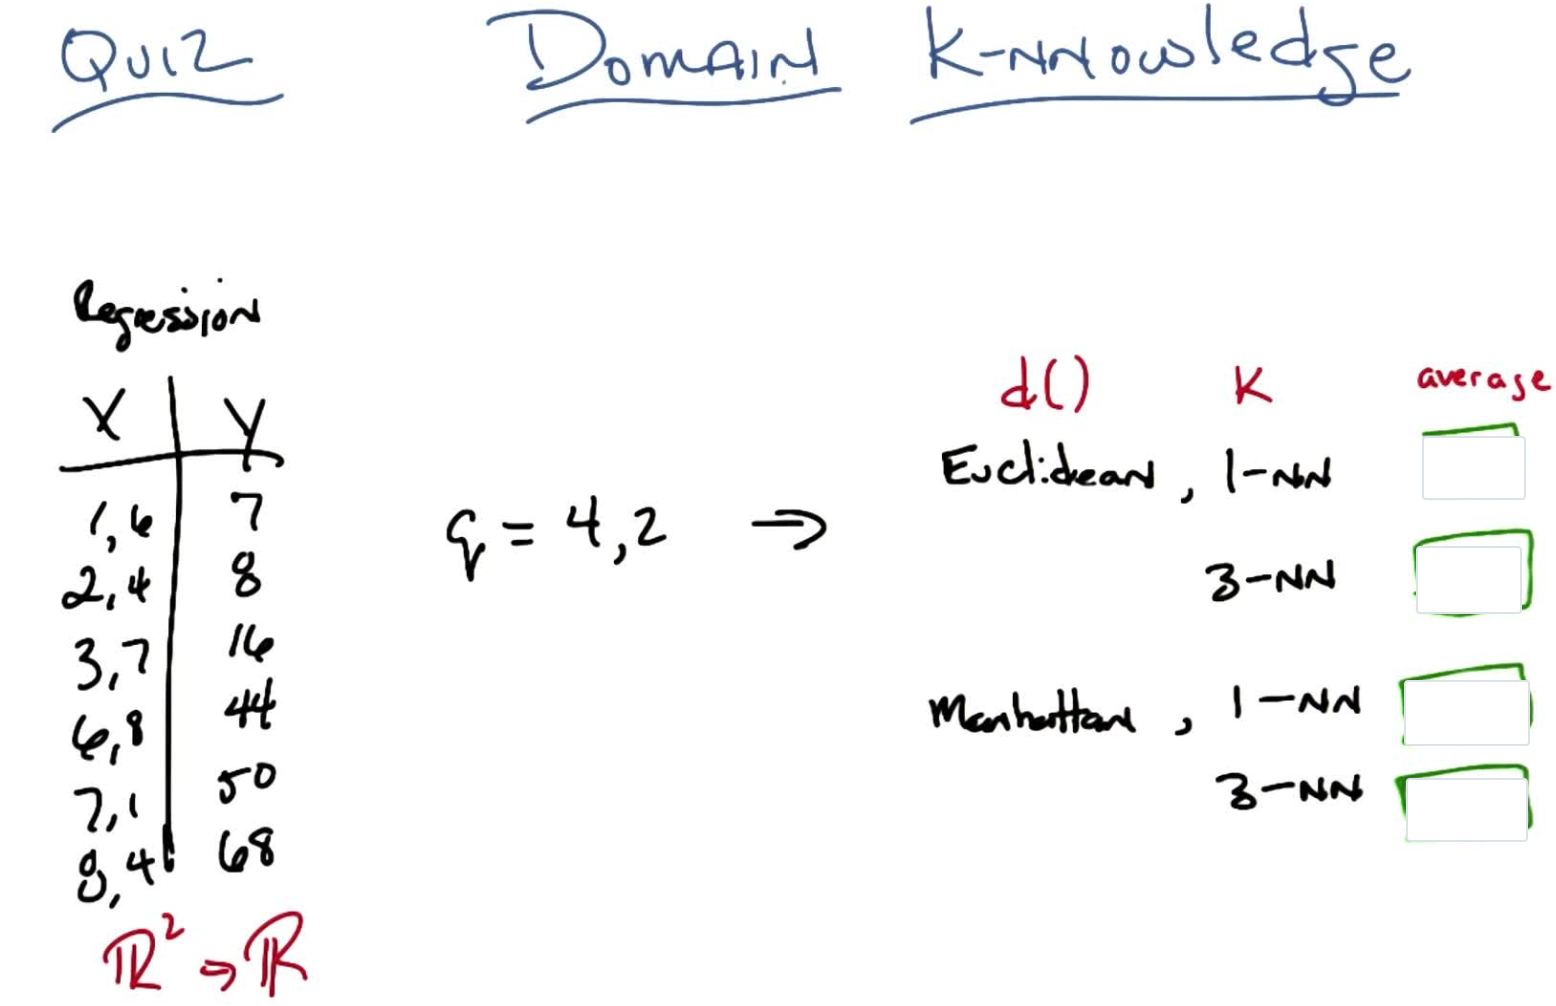 Quiz Domain K-NNowledge
Regression
X Y
1,6 7
2,4 8
3,7 16
6,8 44
7,1 50
8,4 68
ℝ² → ℝ
q = 4,2 ⇒
d() K average
Euclidean, 1-NN
3-NN
Manhattan, 1-NN
3-NN